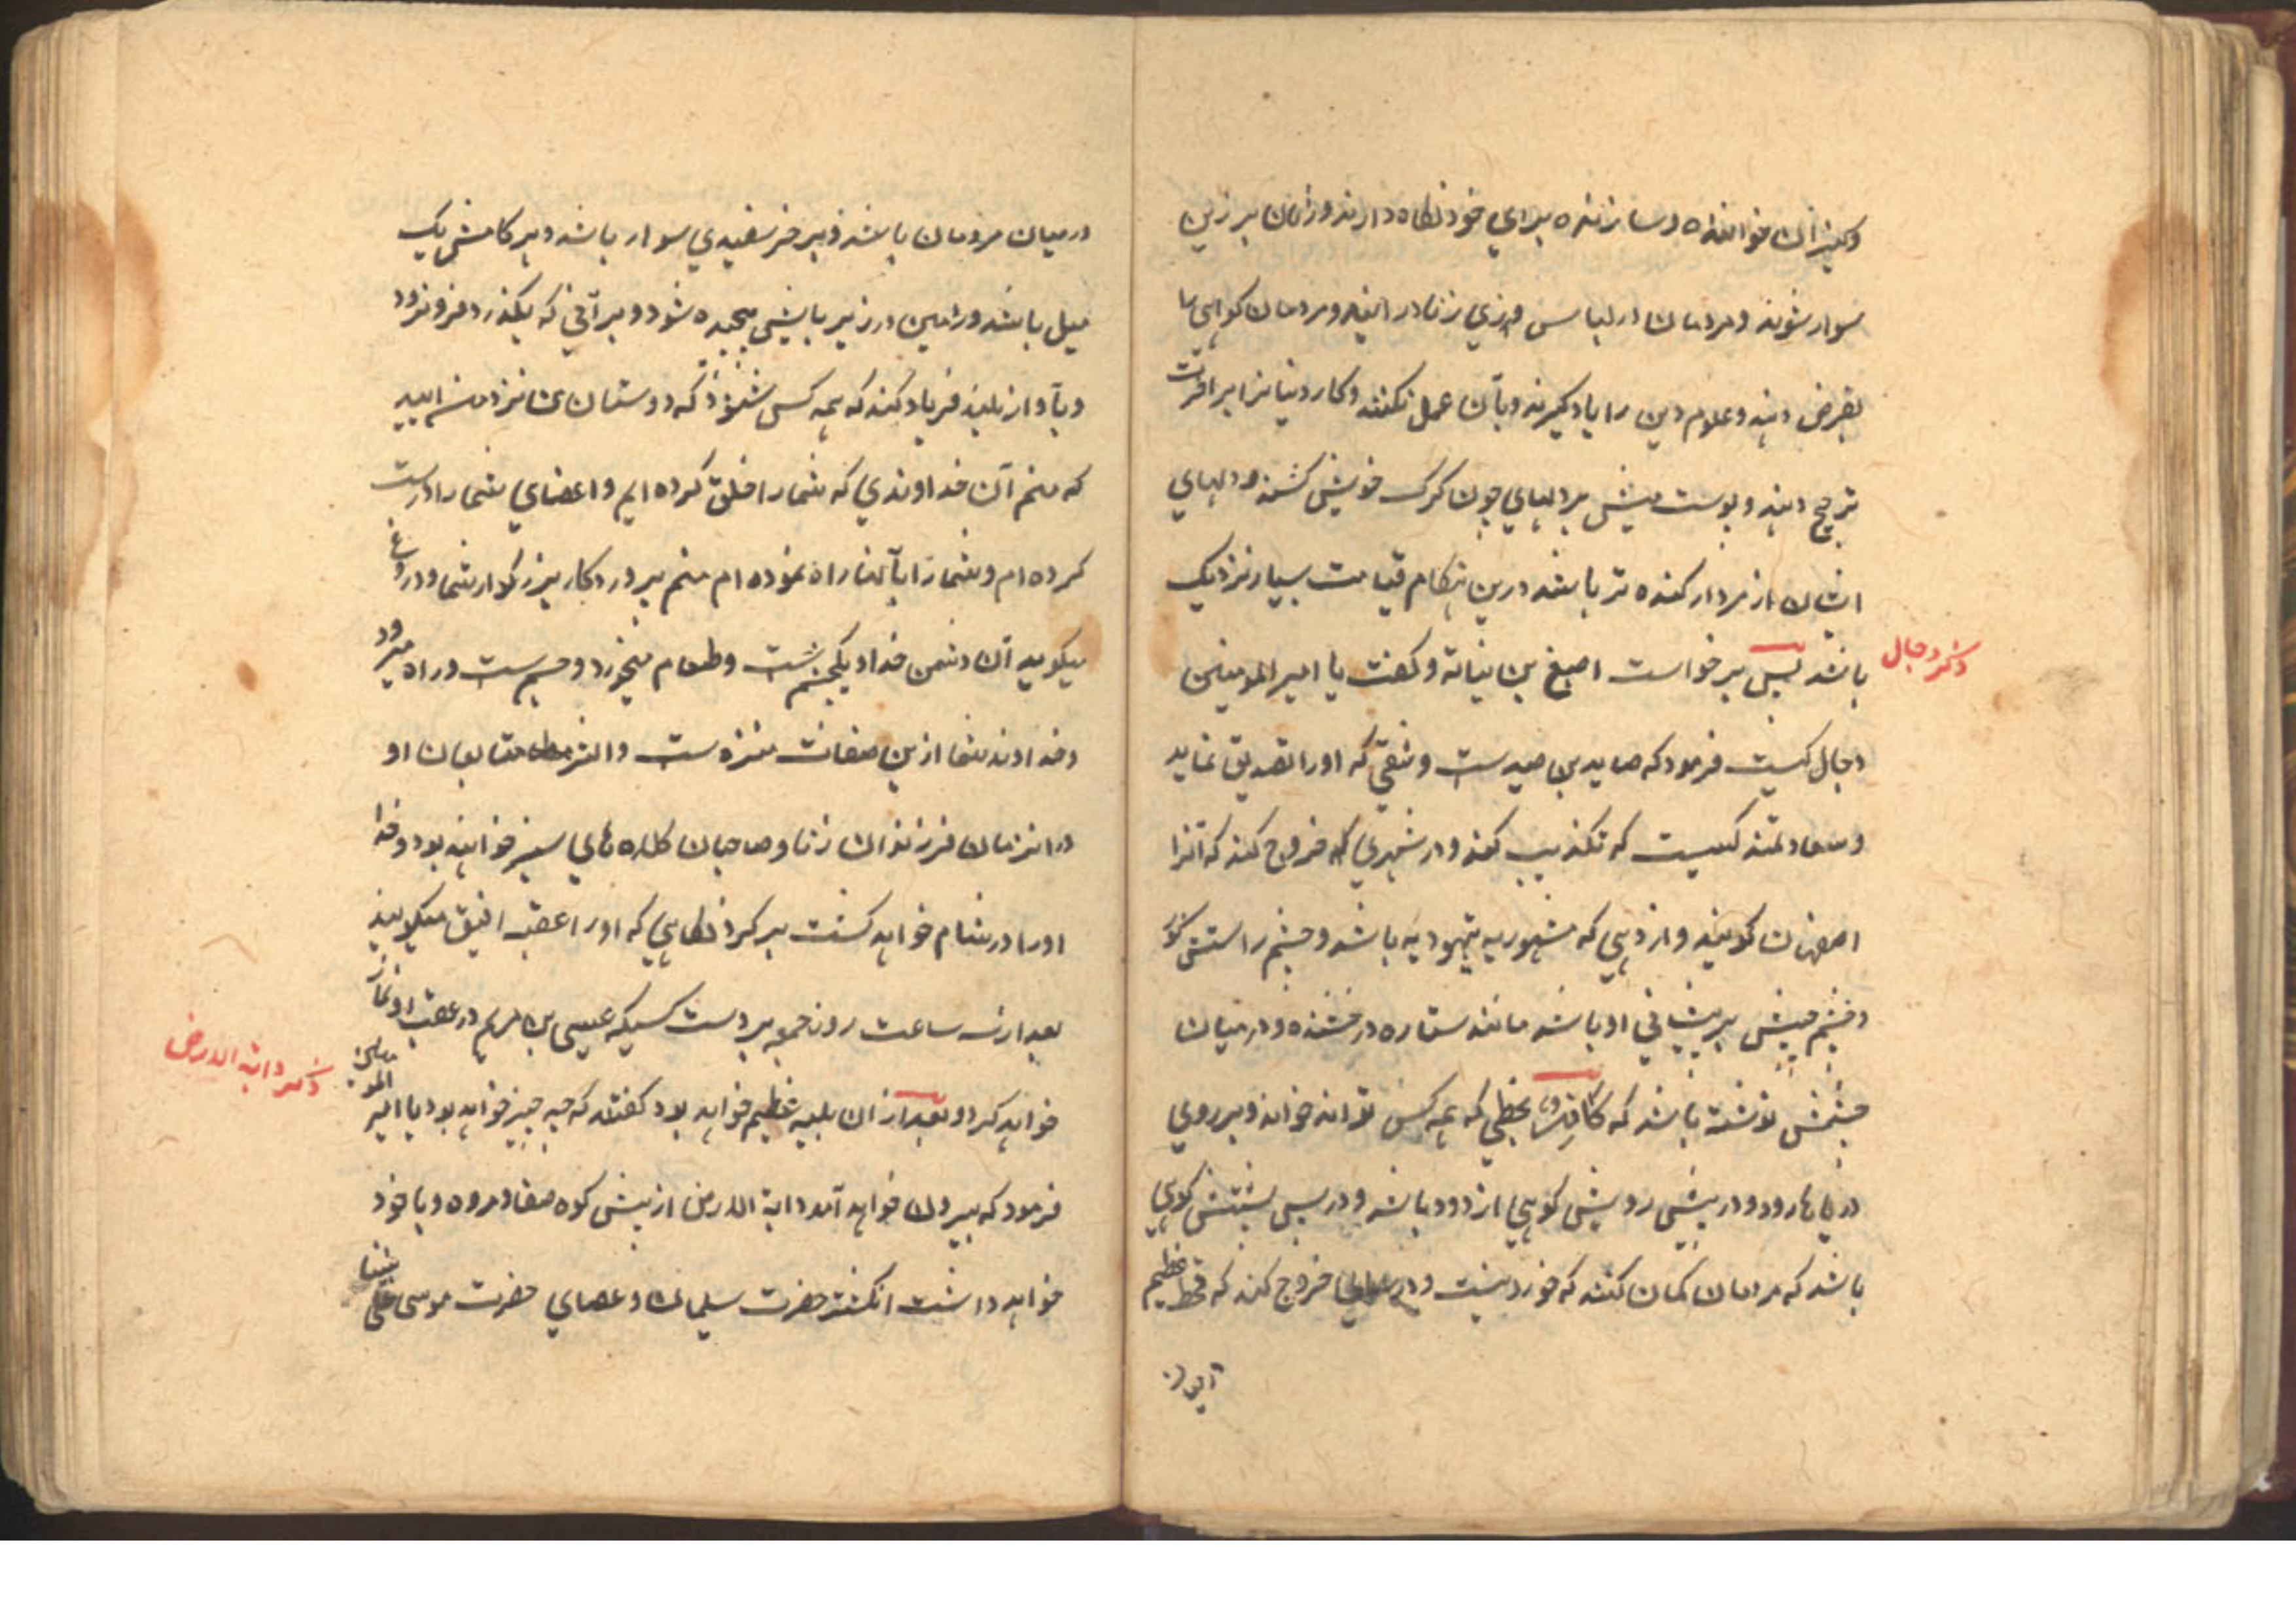 وکنیزان خواننده و سازنده برای خود نگاه دارند و زنان بر زین
سوار شوند و مردمان در لباس و زی زنان در ایند و مردمان کواهی
بغرض دهند و علوم دین را یاد کیرند و بآن عمل نکنند و کار دنیا را بر اخرت
ترجیح دهند و پوست میش بر دلهای چون کرک خویش کشند و دلهای
ایشان از مردار کنده تر باشد درین هنکام قیامت بسیار نزدیک
باشد پس بر خواست اصبغ بن نباته و کفت یا امیر المومنین
ذکر دجال
دجال کیست فرمود که صاید بن صیدست و شقی که او را تصدیق نماید
و سعادتمند کسیست که تکذیب کند و در شهری که خروج کند که آنرا
اصفهان کویند و از دهی که مشهور به یهودیه باشد و چشم راستش کور
و چشم چپش بر پیشانی او باشد مانند ستاره درخشنده و در میان
چشمش نوشته باشد که کافر بخطی که همه کس تواند خواند و بر روی
دریاها رود و در پیش رویش کوهی از دود باشد و در پس پشتش کوهی
باشد که مردمان کمان کنند که خوردنیست و در خروج کند که قحط عظیم
در میان مردمان باشد و بر خر سفیدی سوار باشد و هر کامش یک
میل باشد و زمین در زیر پایش پیچیده شود و بر آبی که بکذرد فرو رود
و بآواز بلند فریاد کند که همه کس شنود که دوستان من نزد من ایید
که منم آن خداوندی که شما را خلق کرده ایم و اعضای شما را درست
کرده ام و شما را بآنها راه نموده ام منم پروردکار بزرکوار شما و دروغ
میکوید آن دشمن خدا و یکچشم است و طعام میخورد و جسم ست و راه میرود
و خداوند شما ازین صفات منزه ست و اکثر متابعان او
در انزمان فرزندان زنا و صاحبان کلاه های سبز خواهند بود و خدا
او را در شام خواهد کشت بر کردنکاهی که او را عقبه افیق میکویند
بعد از سه ساعت روز جمعه بر دست کسیکه عیسی بن مریم در عقب او نماز
خواهد کرد و بعد از ان بلیه عظیم خواهد بود کفتند که چه چیز خواهد بود یا امیر المومنین
ذکر دابة الارض
فرمود که بیرون خواهد آمد دابة الارض از پیش کوه صفا و مروه و با خود
خواهد داشت انکشتر حضرت سلیمان و عصای حضرت موسی علی نبینا